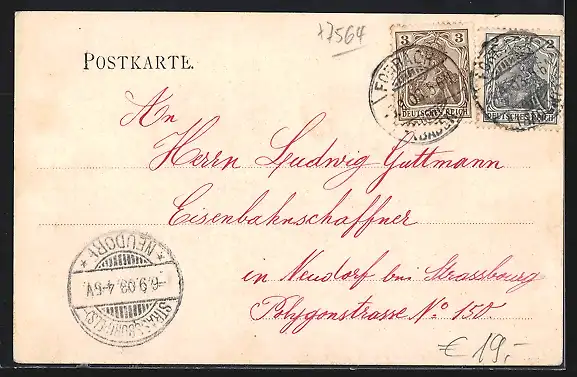 x7564
POSTKARTE.
3
DEUTSCHES REICH
2
DEUTSCHES REICH
FORBACH
(BADEN)
An
Herrn Ludwig Guttmann
Eisenbahnschaffner
in Neudorf bei Strassburg
Polygonstrasse No 150
* NEUDORF *
-6.9.03.4-5N.
STRASSBURG (ELS)
€ 19,-